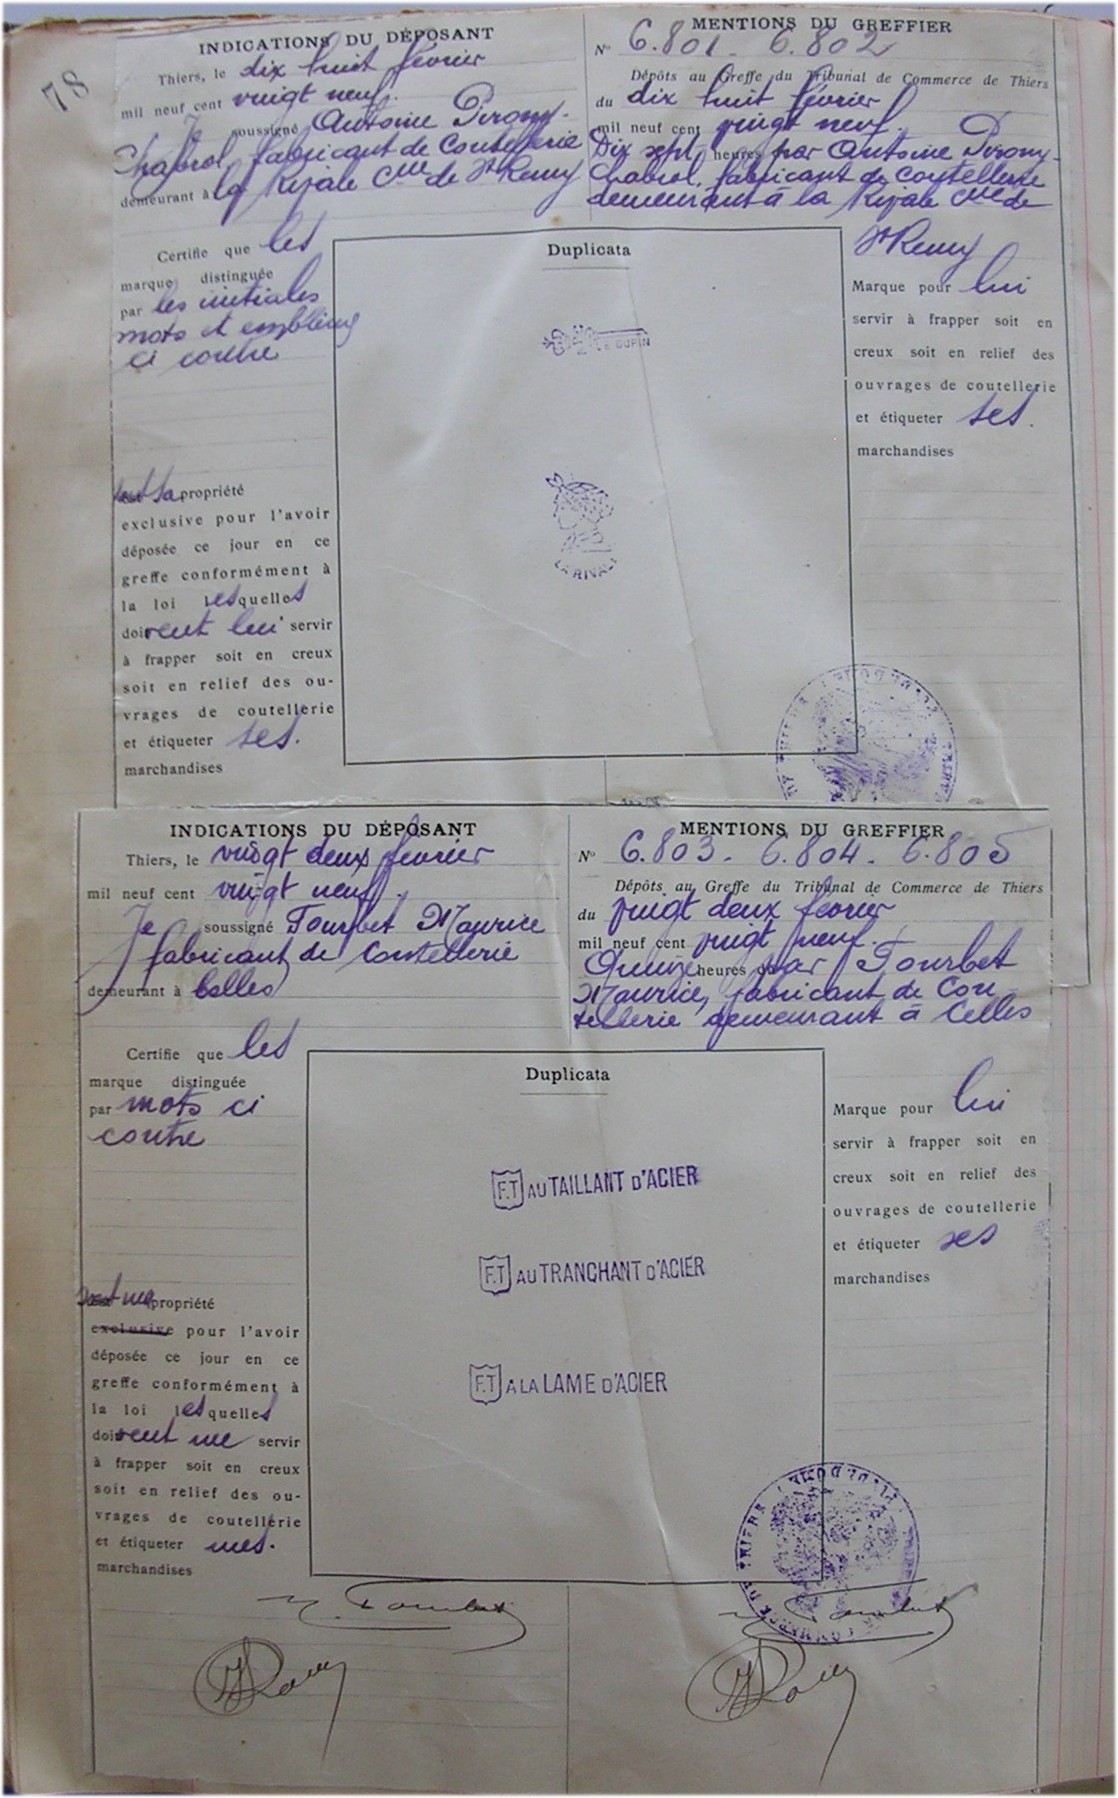 78
INDICATIONS DU DÉPOSANT
Thiers, le dix huit février
mil neuf cent vingt neuf.
Je soussigné Antoine Pirony-
Chabrol, fabricant de Coutellerie
demeurant à la Rijale Cne de St Remy
Certifie que les
marque distinguée
par les initiales
mots et emblêmes
ci contre
sont sa propriété
exclusive pour l'avoir
déposée ce jour en ce
greffe conformément à
la loi lesquelles
doivent lui servir
à frapper soit en creux
soit en relief des ou-
vrages de coutellerie
et étiqueter ses.
marchandises
Duplicata
LE DUPIN
LA RIVALE
MENTIONS DU GREFFIER
N° 6.801 - 6.802
Dépôts au Greffe du Tribunal de Commerce de Thiers
du dix huit février
mil neuf cent vingt neuf.
Dix sept heures par Antoine Pirony-
Chabrol, fabricant de coutellerie
demeurant à la Rijale Cne de
St Remy
Marque pour lui
servir à frapper soit en
creux soit en relief des
ouvrages de coutellerie
et étiqueter ses.
marchandises
INDICATIONS DU DÉPOSANT
Thiers, le vingt deux février
mil neuf cent vingt neuf.
Je soussigné Fourbet Maurice
fabricant de Coutellerie
demeurant à Celles
Certifie que les
marque distinguée
par mots ci
contre
sont ma propriété
exclusive pour l'avoir
déposée ce jour en ce
greffe conformément à
la loi lesquelles
doivent me servir
à frapper soit en creux
soit en relief des ou-
vrages de coutellerie
et étiqueter mes.
marchandises
Duplicata
F.T AU TAILLANT D'ACIER
F.T AU TRANCHANT D'ACIER
F.T A LA LAME D'ACIER
MENTIONS DU GREFFIER
N° 6.803 - 6.804 - 6.805
Dépôts au Greffe du Tribunal de Commerce de Thiers
du vingt deux février
mil neuf cent vingt neuf.
Quinze heures par Fourbet
Maurice, fabricant de Cou-
tellerie demeurant à Celles
Marque pour lui
servir à frapper soit en
creux soit en relief des
ouvrages de coutellerie
et étiqueter ses
marchandises